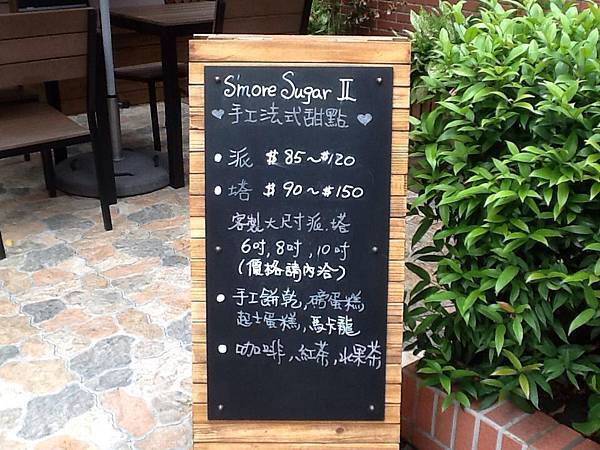 S'more Sugar II
♥手工法式甜點♥
● 派 $85~$120
● 塔 $90~$150
客製大尺寸派.塔
6吋,8吋,10吋
(價格請內洽)
● 手工餅乾,磅蛋糕
起士蛋糕,馬卡龍
● 咖啡、紅茶,水果茶